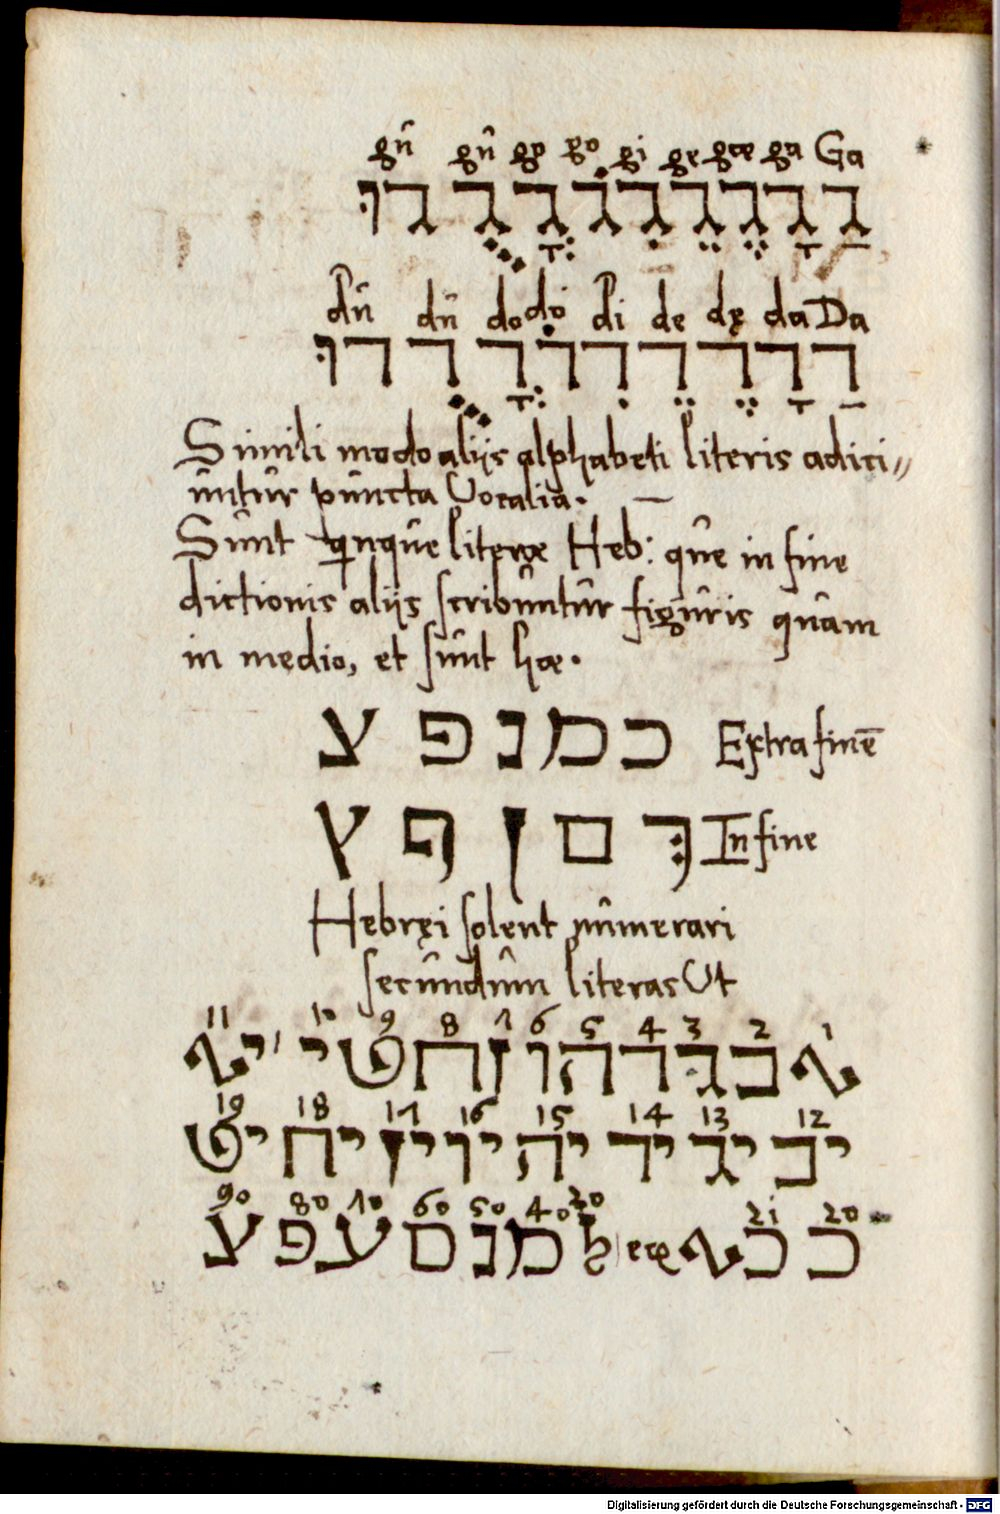 gu gu go go gi ge gæ ga Ga
גַ גָ גֶ גֵ גִ גֹ גֳ גֻ גוּ
du du do do di de dę da Da
דַ דָ דֶ דֵ דִ דֹ דֳ דֻ דוּ
Simili modo aliis alphabeti literis adici〃
untur puncta Vocalia.
Sunt qnque literæ Heb: que in fine
dictionis aliis scribuntur figuris quam
in medio, et sunt hæ.
Extra finē כ מ נ פ צ
In fine ךְ ם ן ף ץ
Hebręi solent numerari
secundum literas Ut
11 10 9 8 7 6 5 4 3 2 1
א ב ג ד ה ו ז ח ט י יא
19 18 17 16 15 14 13 12
יב יג יד יה יו יז יח יט
90 80 70 60 50 40 30 21 20
כ כא ל מ נ ס ע פ צ
Digitalisierung gefördert durch die Deutsche Forschungsgemeinschaft - DFG